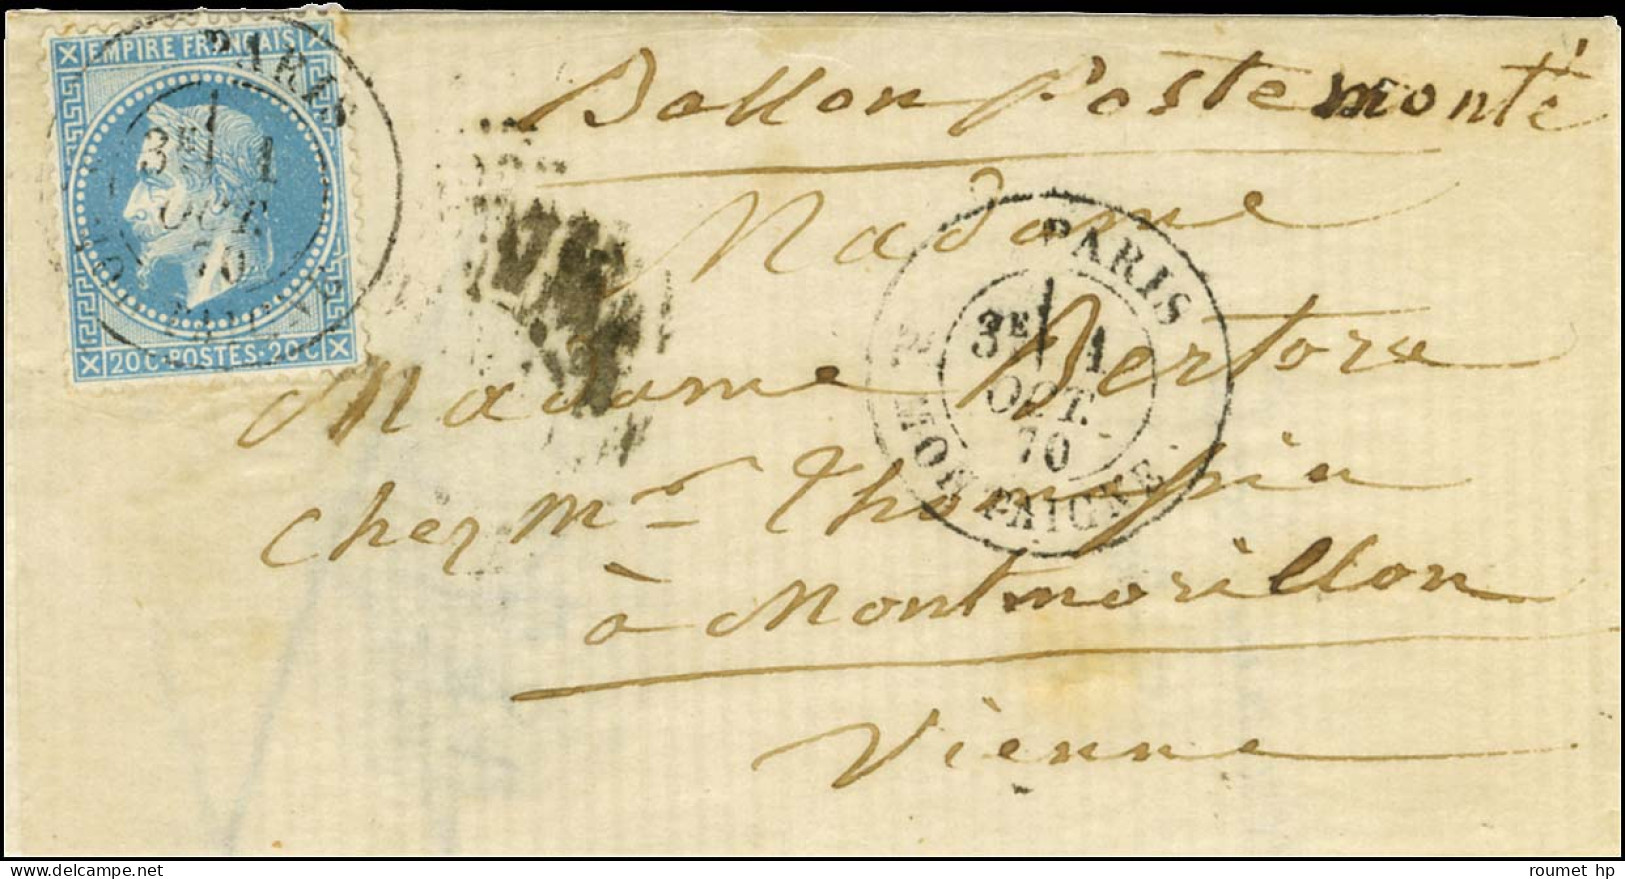 EMPIRE FRANÇAIS
PARIS
3E 1
OCT.
70
20C·POSTES·20C
Ballon Poste monté
Madame
PARIS
3E 1
OCT.
70
R. MONTAIGNE
Madame Bertore
chez Mr Thompin
à Montmorillon
Vienne
roumet hp